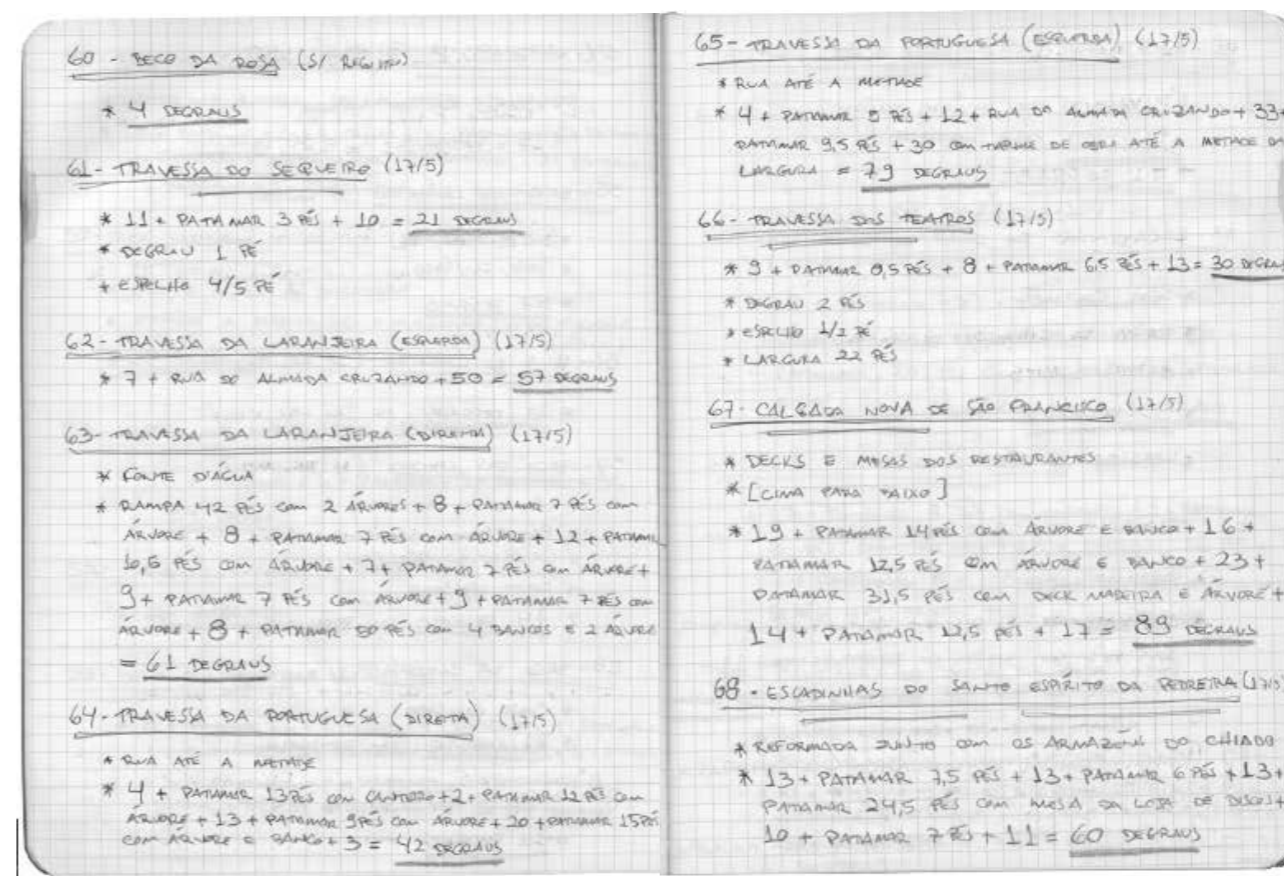 60 - BECO DA ROSA (S/ REGISTRO)
* 4 DEGRAUS
61 - TRAVESSA DO SEQUEIRO (17/5)
* 11 + PATAMAR 3 PÉS + 10 = 21 DEGRAUS
* DEGRAU 1 PÉ
+ ESPELHO 4/5 PÉ
62 - TRAVESSA DA LARANJEIRA (ESQUERDA) (17/5)
* 7 + RUA DO ALMADA CRUZANDO + 50 = 57 DEGRAUS
63 - TRAVESSA DA LARANJEIRA (DIREITA) (17/5)
* FONTE D'ÁGUA
* RAMPA 42 PÉS COM 2 ÁRVORES + 8 + PATAMAR 7 PÉS COM
ÁRVORE + 8 + PATAMAR 7 PÉS COM ÁRVORE + 12 + PATAMAR
PÉS COM ÁRVORE + 7 + PATAMAR 7 PÉS COM ÁRVORE +
9 + PATAMAR 7 PÉS COM ÁRVORE + 9 + PATAMAR 7 PÉS COM
ÁRVORE + 8 + PATAMAR 50 PÉS COM 4 BANCOS E 2 ÁRVORE
= 61 DEGRAUS
64 - TRAVESSA DA PORTUGUESA (DIREITA) (17/5)
* RUA ATÉ A METADE
* 4 + PATAMAR 13 PÉS COM CANTEIRO + 2 + PATAMAR 12 PÉS COM
ÁRVORE + 13 + PATAMAR 9 PÉS COM ÁRVORE + 20 + PATAMAR 15 PÉS
COM ÁRVORE E BANCO + 3 = 42 DEGRAUS
65 - TRAVESSA DA PORTUGUESA (ESQUERDA) (17/5)
* RUA ATÉ A METADE
* 4 + PATAMAR PÉS + 12 + RUA DO ALMADA CRUZANDO + 33 +
PATAMAR 9,5 PÉS + 30 COM TAPUME DE OBRA ATÉ A METADE DA
LARGURA = 79 DEGRAUS
66 - TRAVESSA DOS TEATROS (17/5)
* 9 + PATAMAR PÉS + 8 + PATAMAR 6,5 PÉS + 13 = 30 DEGRAU
* DEGRAU 2 PÉS
* ESPELHO 1/2 PÉ
* LARGURA 22 PÉS
67 - CALÇADA NOVA DE SÃO FRANCISCO (17/5)
* DECKS E MESAS DOS RESTAURANTES
* [CIMA PARA BAIXO]
* 19 + PATAMAR 14 PÉS COM ÁRVORE E BANCO + 16 +
PATAMAR 12,5 PÉS COM ÁRVORE E BANCO + 23 +
PATAMAR 31,5 PÉS COM DECK MADEIRA E ÁRVORE +
14 + PATAMAR 12,5 PÉS + 17 = 89 DEGRAUS
68 - ESCADINHAS DO SANTO ESPÍRITO DA PEDREIRA (17/5)
* REFORMADA JUNTO COM OS ARMAZÉNS DO CHIADO
* 13 + PATAMAR 7,5 PÉS + 13 + PATAMAR 6 PÉS + 13 +
PATAMAR 24,5 PÉS COM MESA DA LOJA DE DISCOS +
10 + PATAMAR 7 PÉS + 11 = 60 DEGRAUS